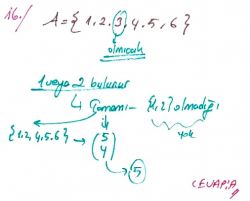 16./ A={1,2,3,4,5,6}
olmıcak
1 veya 2 bulunur
↳ Tamamı - {1,2} olmadığı
yok
{1,2,4,5,6} → (5 4)
→ 5
CEVAP: A